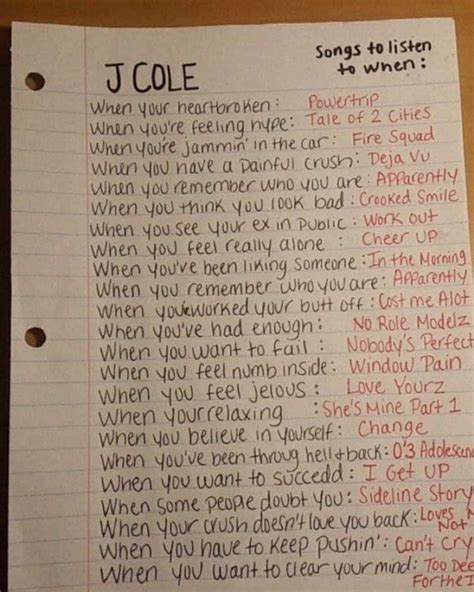 Songs to listen
J COLE to when:
When your heartbroken: Powertrip
When you're feeling hype: Tale of 2 Cities
When you're jammin' in the car: Fire Squad
When you have a painful crush: Deja Vu
When you remember who you are: Apparently
When you think you look bad: Crooked Smile
When you see your ex in public: Work out
When you feel really alone: Cheer UP
When you've been liking someone: In the Morning
When you remember who you are: Apparently
When you've worked your butt off: Cost me Alot
When you've had enough: No Role Modelz
When you want to fail: Nobody's Perfect
When you feel numb inside: Window Pain
When you feel jelous: Love Yourz
When your relaxing: She's Mine Part 1
When you believe in yourself: Change
When you've been throug hell + back: 0'3 Adolescen
When you want to succedd: I Get UP
When some people doubt you: Sideline Story
When your crush doesn't love you back: Loves Not
When you have to keep pushin': Can't Cry
When you want to clear your mind: Too Dee
For the I